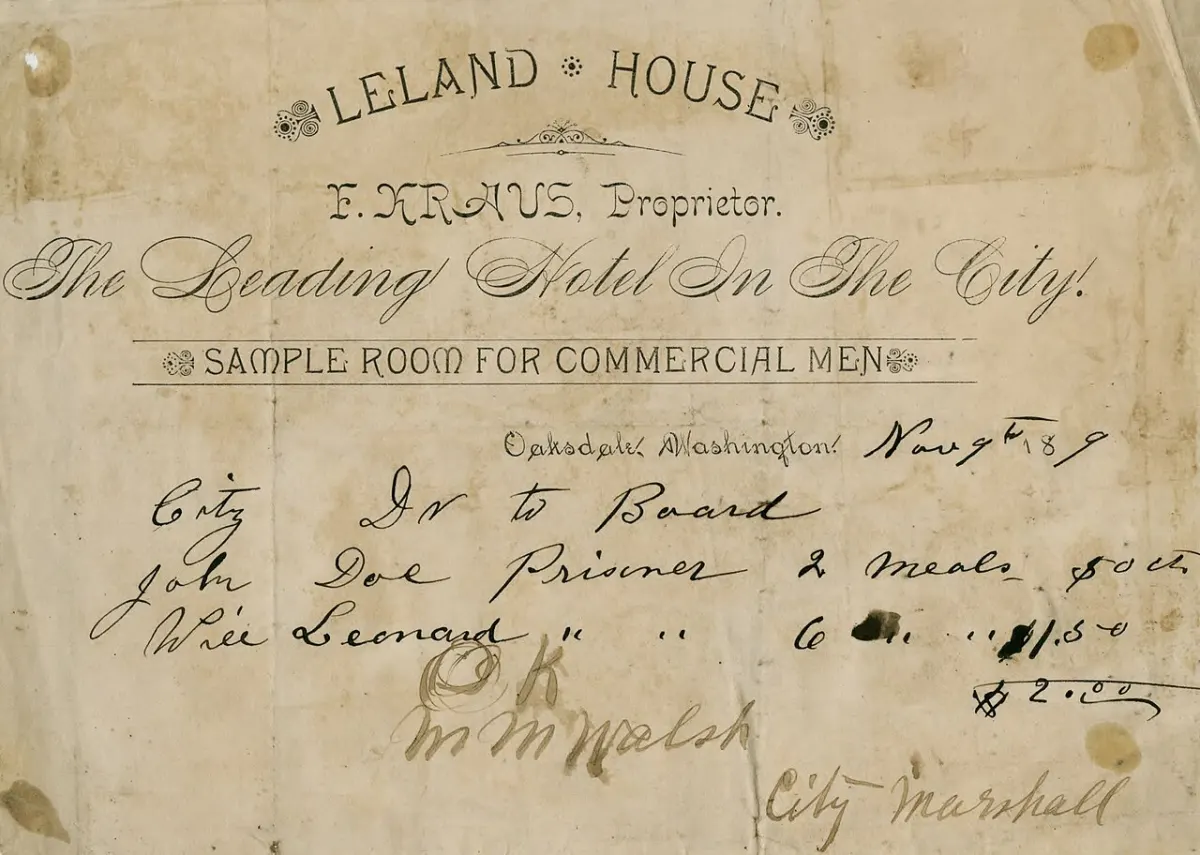 LELAND HOUSE
F. KRAUS, Proprietor.
The Leading Hotel In The City.
SAMPLE ROOM FOR COMMERCIAL MEN
Oaksdale, Washington. Nov 9th 189
City Dr to Board
John Doe Prisner 2 meals 50 cts
Will Leonard " " 6 " " $1.50
$2.00
O K
M M Walsh
City Marshall